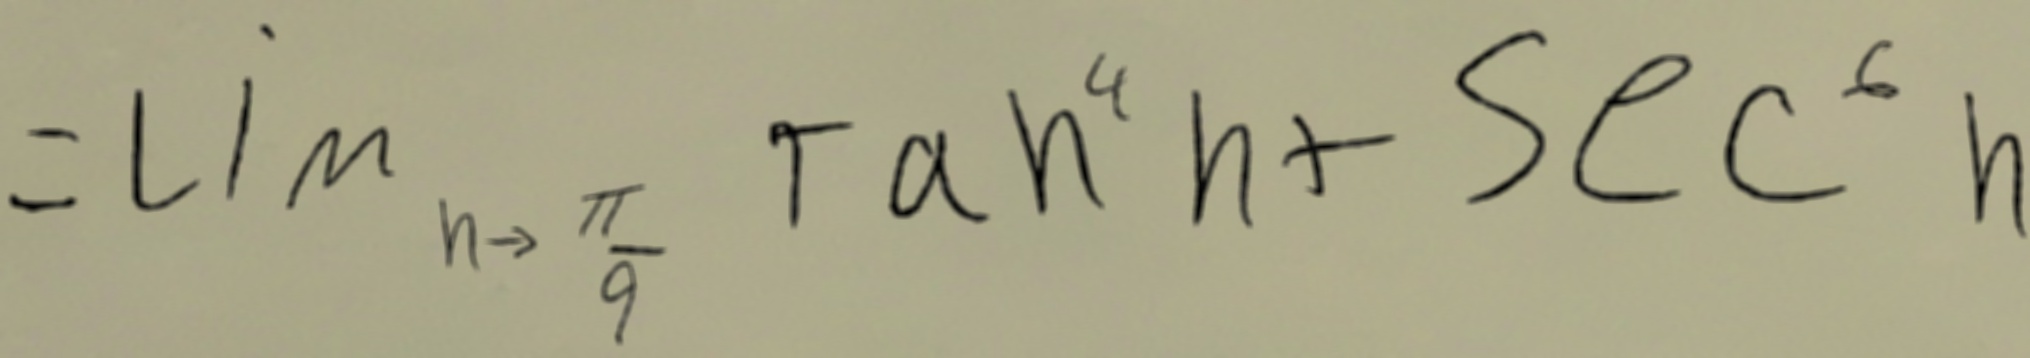 = Lim_{h→\frac{π}{9}} Tan^4 h + Sec^6 h